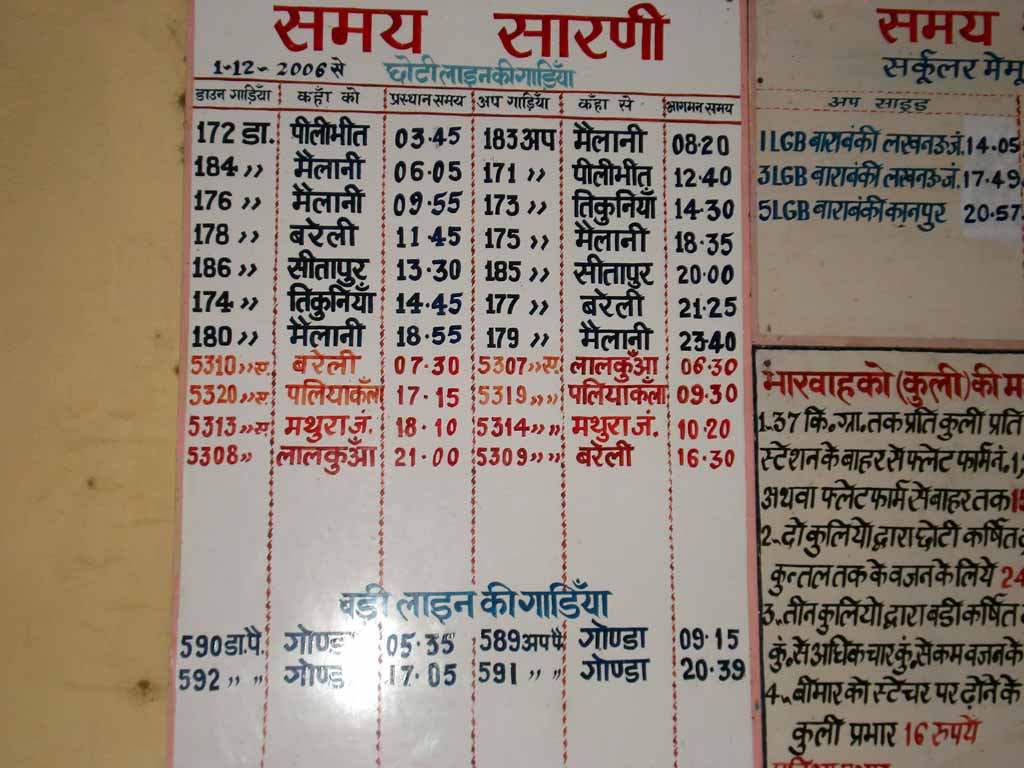 समय सारणी
1-12-2006 से छोटी लाइन की गाड़ियाँ
डाउन गाड़ियाँ कहाँ को प्रस्थान समय अप गाड़ियाँ कहाँ से आगमन समय
172 डा. पीलीभीत 03.45 183 अप मैलानी 08.20
184 ,, मैलानी 06.05 171 ,, पीलीभीत 12.40
176 ,, मैलानी 09.55 173 ,, तिकुनियाँ 14.30
178 ,, बरेली 11.45 175 ,, मैलानी 18.35
186 ,, सीतापुर 13.30 185 ,, सीतापुर 20.00
174 ,, तिकुनियाँ 14.45 177 ,, बरेली 21.25
180 ,, मैलानी 18.55 179 ,, मैलानी 23.40
5310 ,, ए. बरेली 07.30 5307 ,, ए. लालकुआँ 06.30
5320 ,, ए. पलियाकलाँ 17.15 5319 ,, ,, पलियाकलाँ 09.30
5313 ,, ए. मथुरा जं. 18.10 5314 ,, ,, मथुरा जं. 10.20
5308 ,, लालकुआँ 21.00 5309 ,, ,, बरेली 16.30
बड़ी लाइन की गाड़ियाँ
590 डा. पै. गोण्डा 05.35 589 अप पै गोण्डा 09.15
592 ,, ,, गोण्डा 17.05 591 ,, ,, गोण्डा 20.39
समय
सर्कूलर मेमू
अप साइड
1LGB बाराबंकी लखनऊ जं. 14.05
3LGB बाराबंकी लखनऊ जं. 17.49
5LGB बाराबंकी कानपुर 20.57
भारवाहको (कुली) की
1. 37 कि. ग्रा. तक प्रति कुली प्रति
स्टेशन के बाहर से फ्लेट फार्म नं. 1,
अथवा फ्लेट फार्म से बाहर तक
2.. दो कुलियो द्वारा छोटी कर्षित
कुन्तल तक के वजन के लिये 24
3. तीन कुलियो द्वारा बडी कर्षित
कुं. से अधिक चार कुं. से कम वजन के
4.. बीमार को स्टेचर पर ढोने के
कुली प्रभार 16 रुपये